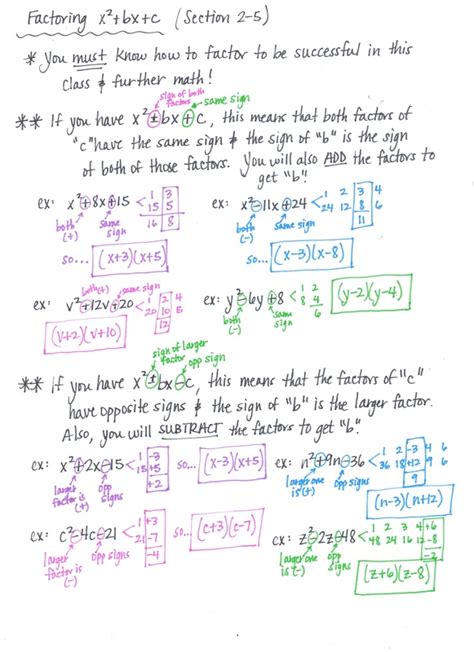 Factoring x²+bx+c (Section 2-5)
* You must know how to factor to be successful in this
class & further math!
sign of both factors
same sign
** If you have x²±bx+c, this means that both factors of
"c" have the same sign & the sign of "b" is the sign
of both of those factors. You will also ADD the factors to
get "b".
ex: x²+8x+15 < 1 3
15 5
16 8
both (+) same sign
so... (x+3)(x+5)
ex: x²-11x+24 < 1 2 3 4
24 12 8 6
11
both (-) same sign
so... (x-3)(x-8)
both(+) same sign
ex: v²+12v+20 < 1 2 4
20 10 5
12
(v+2)(v+10)
ex: y²-6y+8 < 1 2
8 4
6
both (-) same sign
(y-2)(y-4)
sign of larger factor
opp sign
** If you have x²±bx-c, this means that the factors of "c"
have opposite signs & the sign of "b" is the larger factor.
Also, you will SUBTRACT the factors to get "b".
ex: x²+2x-15 < 1 -3
15 +5
+2
larger factor is (+) opp signs
so... (x-3)(x+5)
ex: n²+9n-36 < 1 2 -3 4 6
36 18 +12 9 6
9
larger one is (+) opp signs
(n-3)(n+12)
ex: c²-4c-21 < 1 +3
21 -7
-4
larger factor is (-) opp signs
so... (c+3)(c-7)
ex: z²-2z-48 < 1 2 3 4 +6
48 24 16 12 -8
-2
larger one is (-) opp signs
(z+6)(z-8)